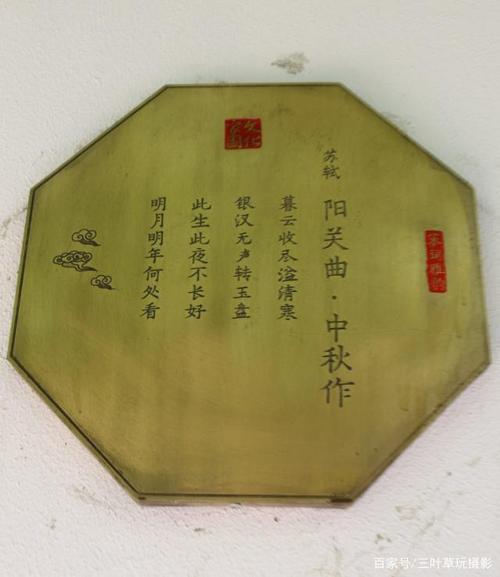 苏轼
阳关曲·中秋作
暮云收尽溢清寒
银汉无声转玉盘
此生此夜不长好
明月明年何处看
百家号/三叶草玩摄影